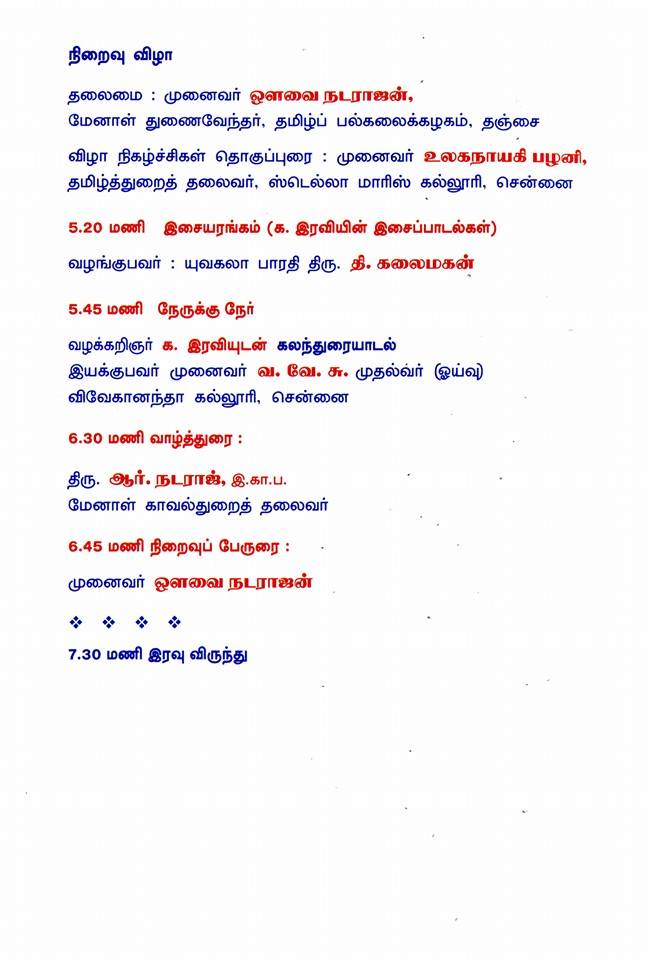 நிறைவு விழா
தலைமை : முனைவர் ஔவை நடராஜன்,
மேனாள் துணைவேந்தர், தமிழ்ப் பல்கலைக்கழகம், தஞ்சை
விழா நிகழ்ச்சிகள் தொகுப்புரை : முனைவர் உலகநாயகி பழனி,
தமிழ்த்துறைத் தலைவர், ஸ்டெல்லா மாரிஸ் கல்லூரி, சென்னை
5.20 மணி இசையரங்கம் (க. இரவியின் இசைப்பாடல்கள்)
வழங்குபவர் : யுவகலா பாரதி திரு. தி. கலைமகன்
5.45 மணி நேருக்கு நேர்
வழக்கறிஞர் க. இரவியுடன் கலந்துரையாடல்
இயக்குபவர் முனைவர் வ. வே. சு. முதல்வர் (ஓய்வு)
விவேகானந்தா கல்லூரி, சென்னை
6.30 மணி வாழ்த்துரை :
திரு. ஆர். நடராஜ், இ.கா.ப.
மேனாள் காவல்துறைத் தலைவர்
6.45 மணி நிறைவுப் பேருரை :
முனைவர் ஔவை நடராஜன்
❖ ❖ ❖ ❖
7.30 மணி இரவு விருந்து